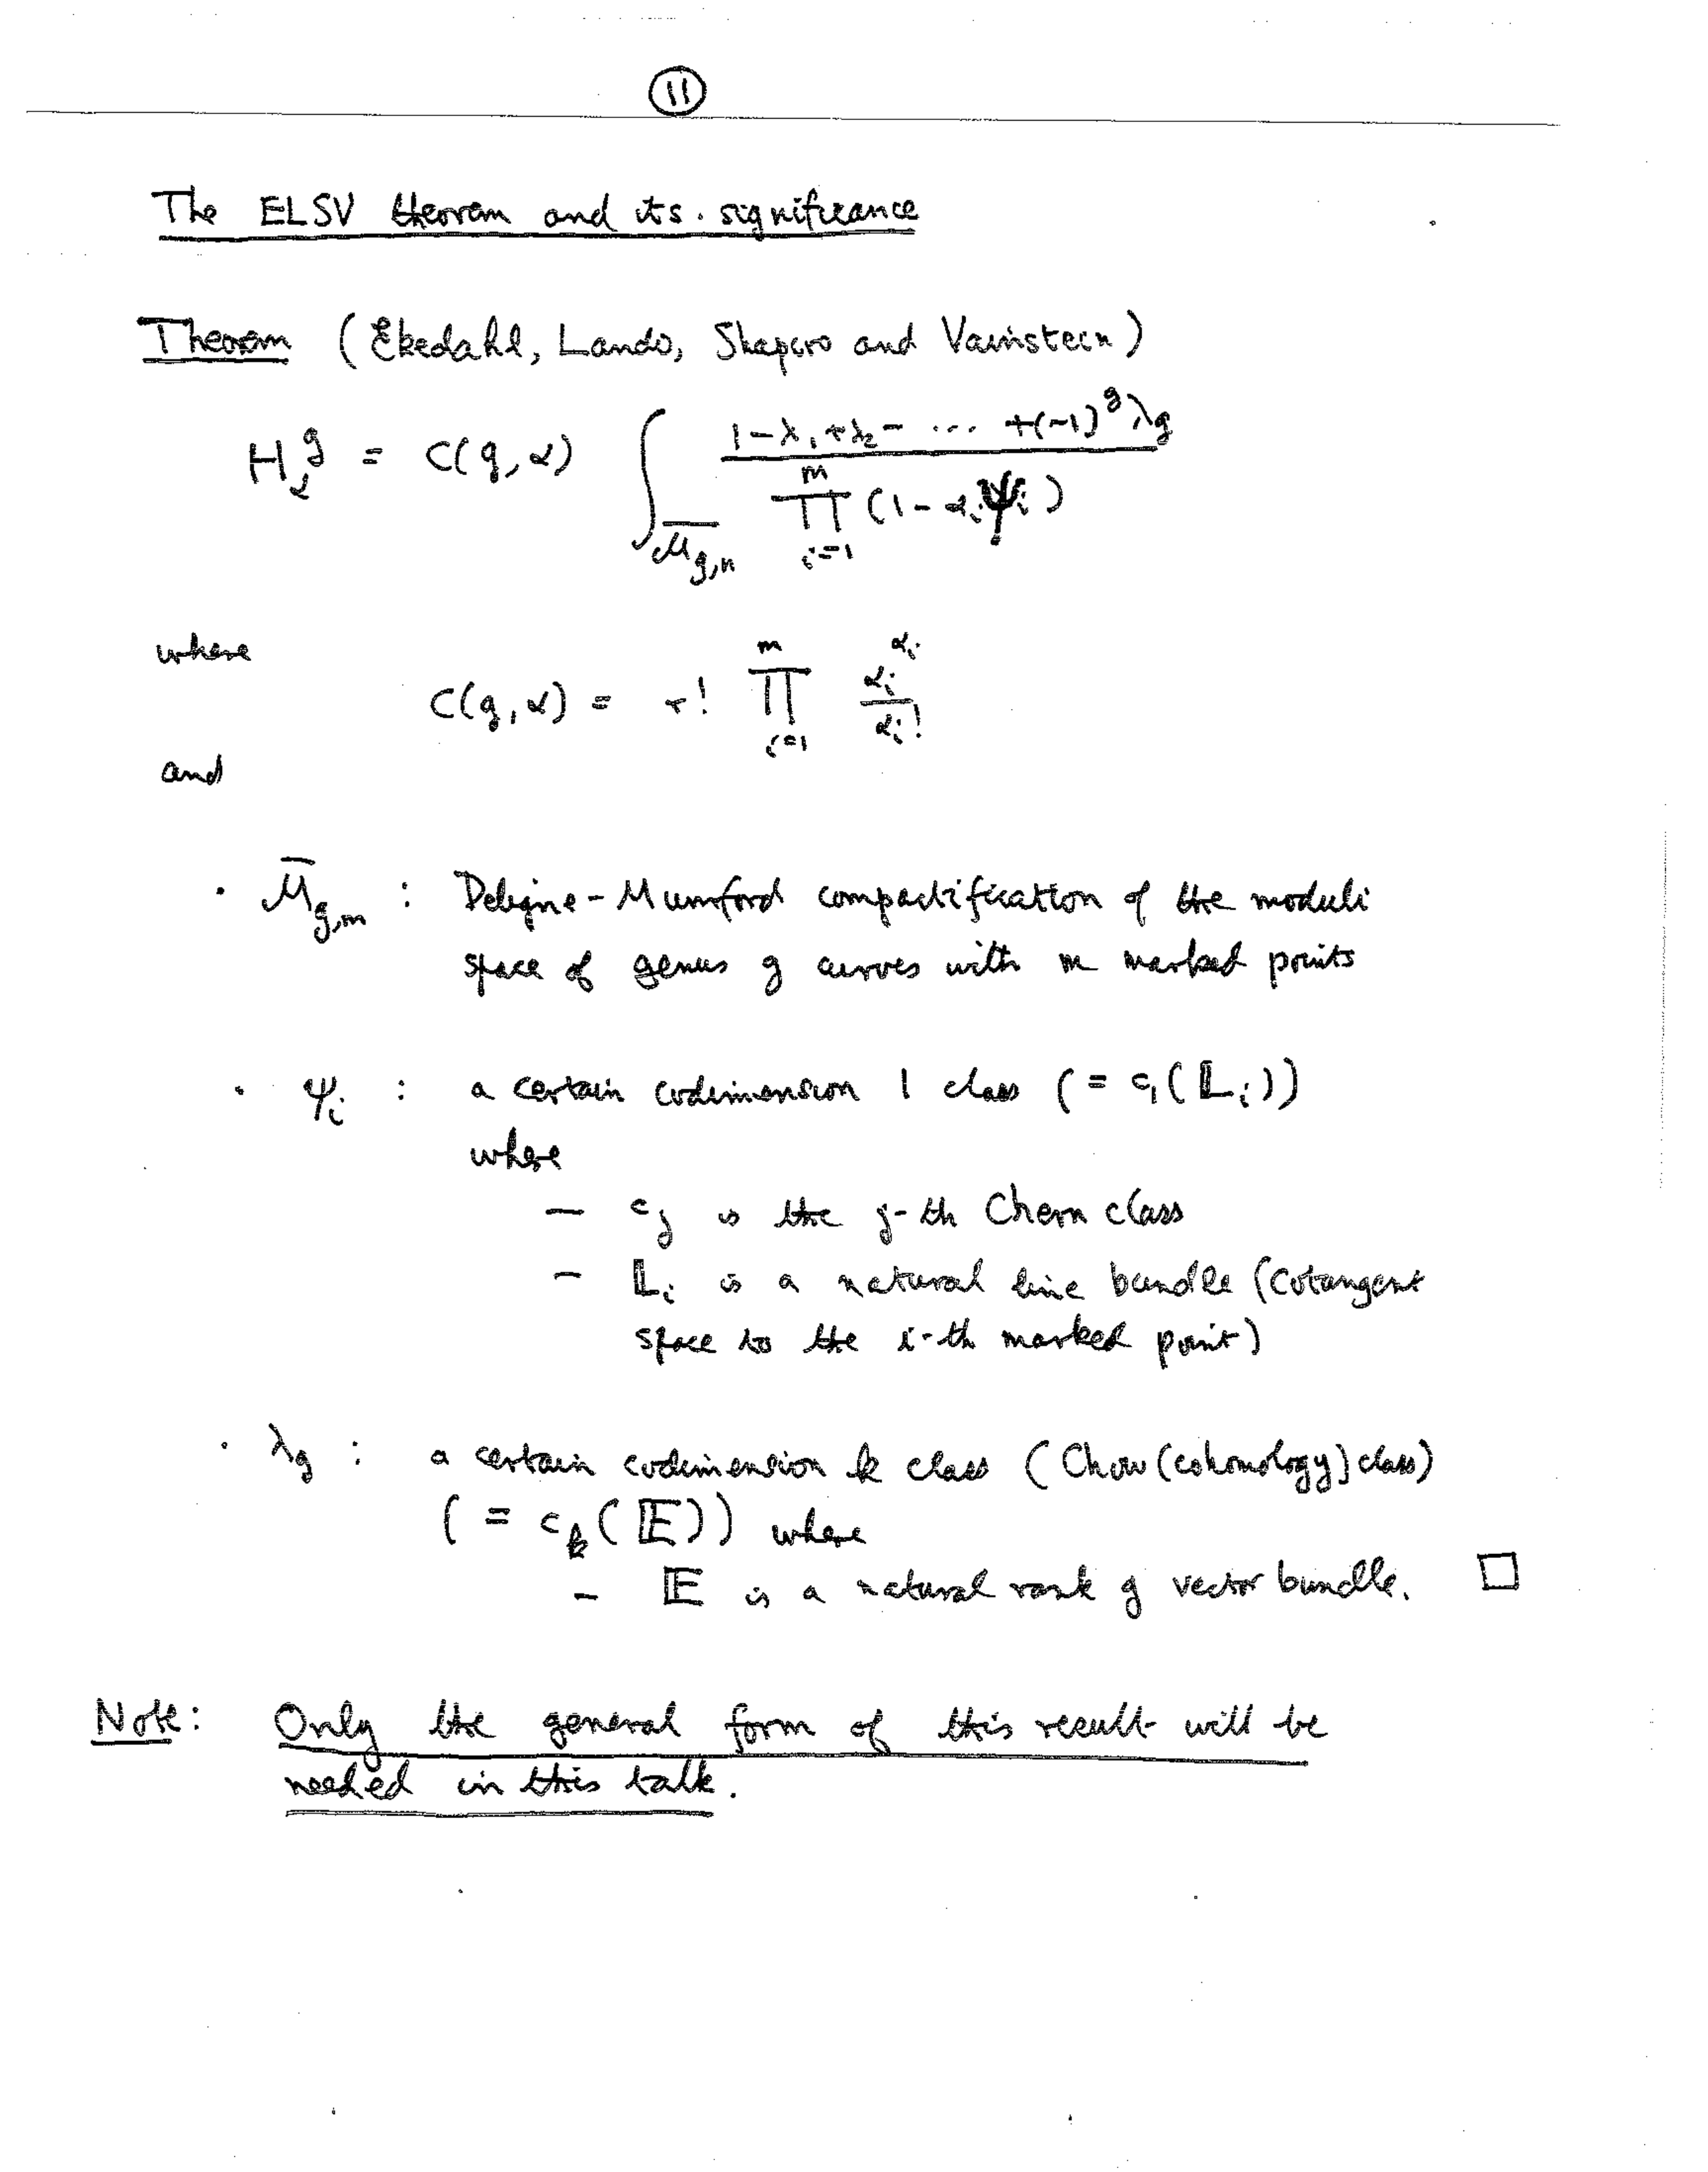 11
The ELSV theorem and its significance
Theorem (Ekedahl, Lando, Shapiro and Vainstein)
H_α^g = C(g,α) ∫_{\overline{M}_{g,n}} \frac{1-λ_1+λ_2- ... +(-1)^g λ_g}{∏_{i=1}^{m} (1-α_i ψ_i)}
where
C(g,α) = r! ∏_{i=1}^{m} \frac{α_i^{α_i}}{α_i!}
and
· \overline{M}_{g,m} : Deligne-Mumford compactification of the moduli
space of genus g curves with m marked points
· ψ_i : a certain codimension 1 class (= c_1(𝕃_i))
where
— c_j is the j-th Chern class
— 𝕃_i is a natural line bundle (cotangent
space to the i-th marked point)
· λ_g : a certain codimension k class (Chow (cohomology) class)
(= c_k(𝔼)) where
– 𝔼 is a natural rank g vector bundle. □
Note: Only the general form of this result will be
needed in this talk.